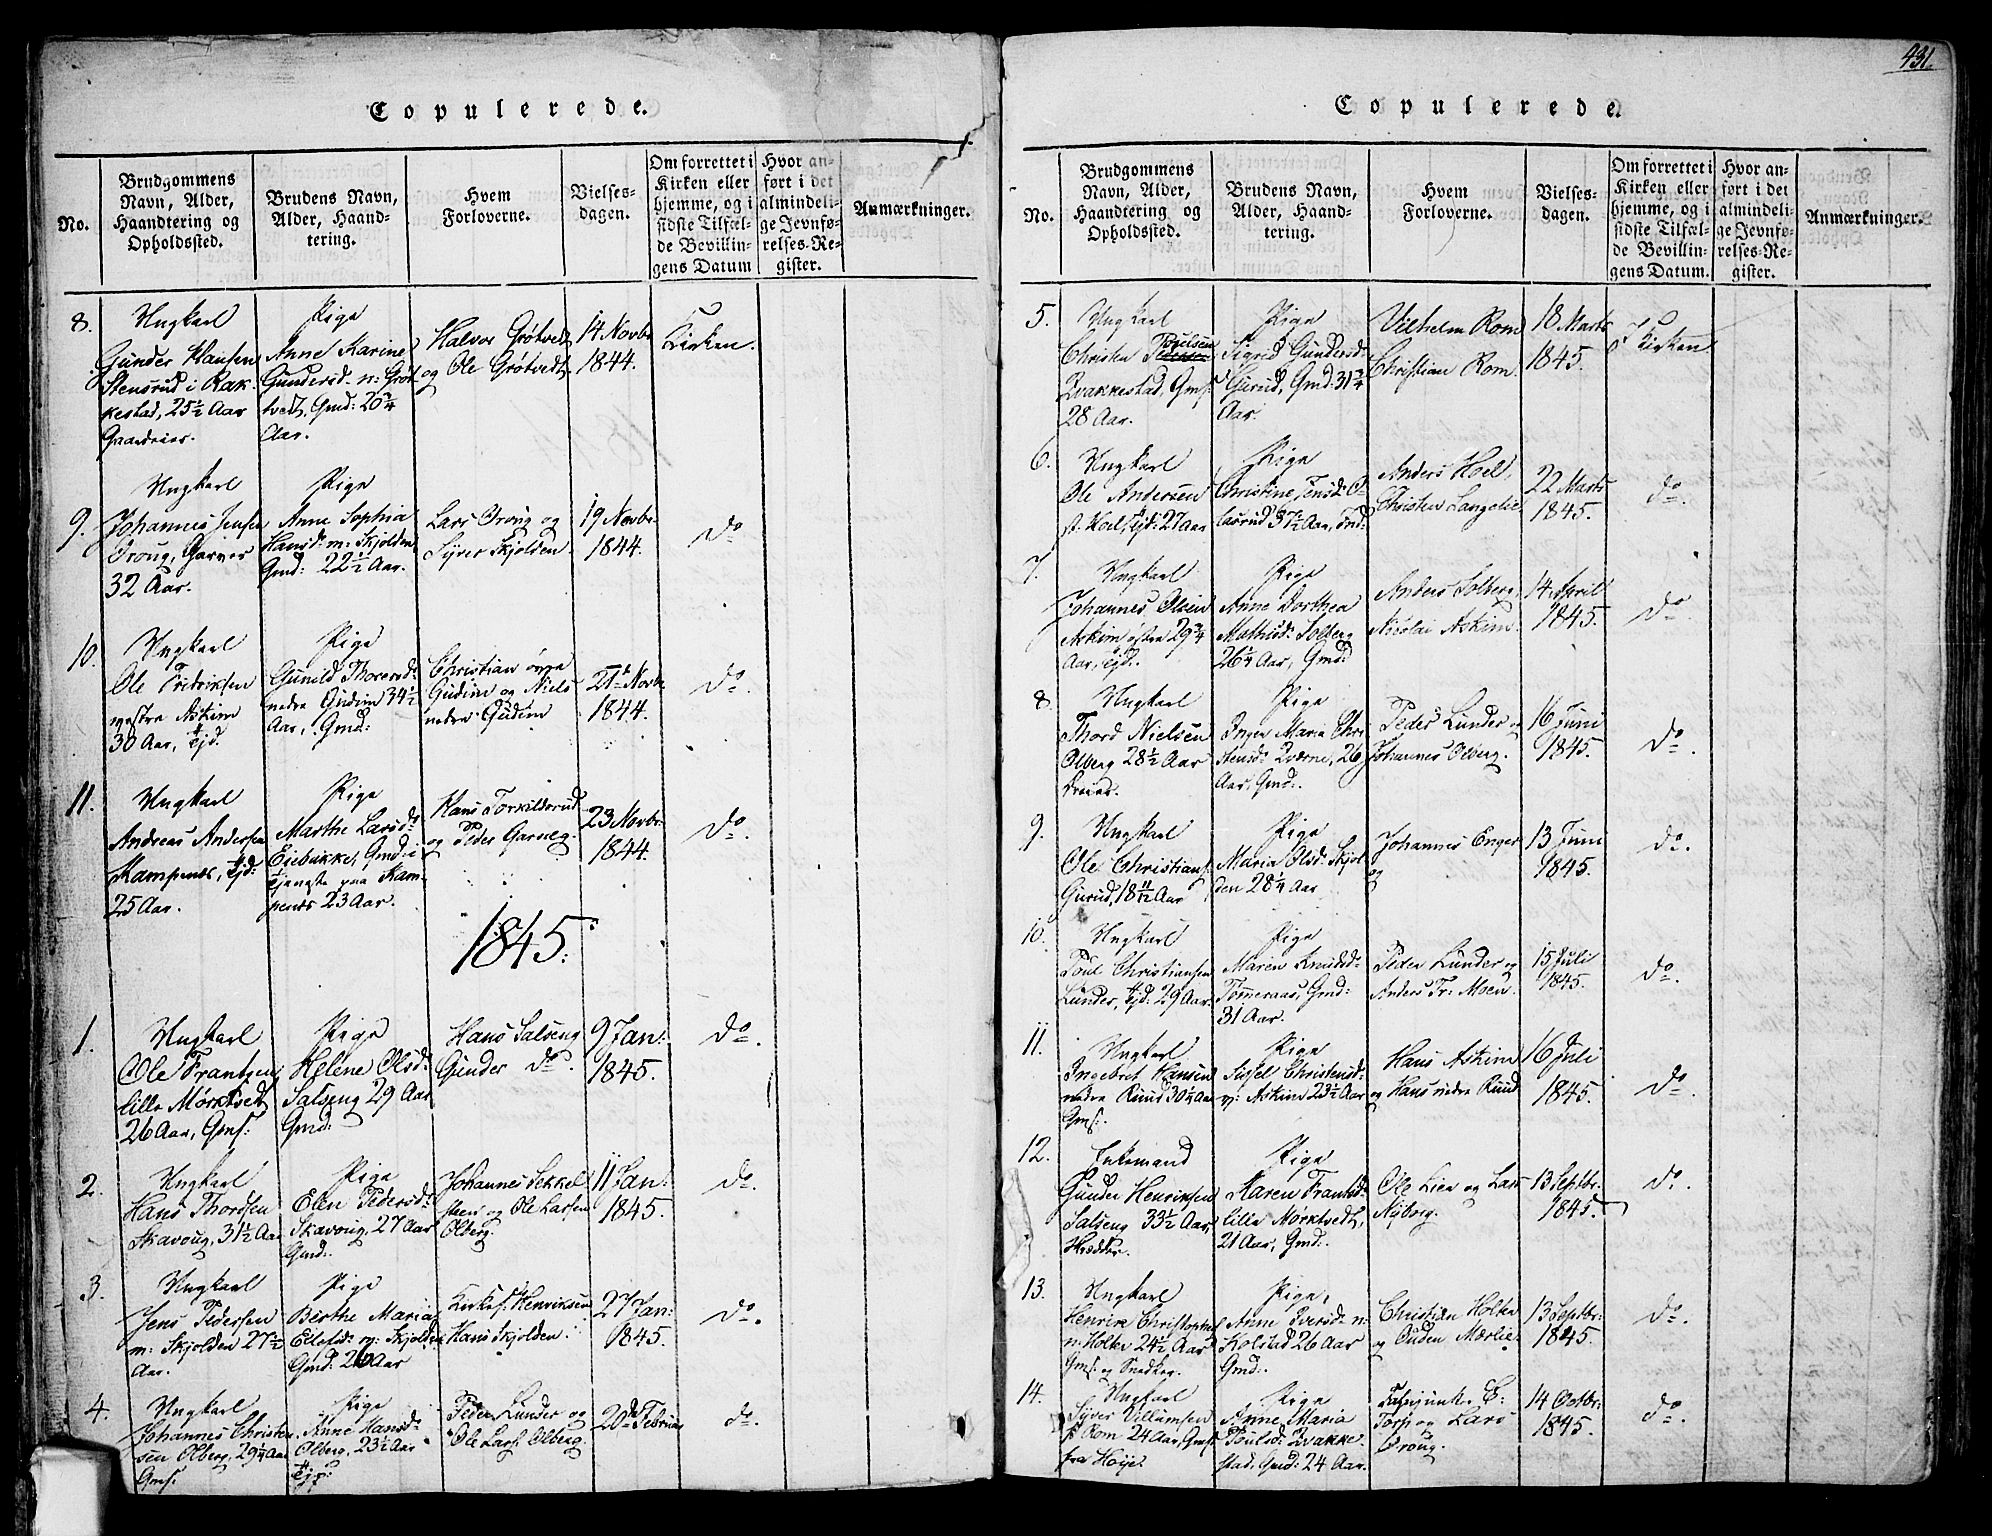 431.
Copulerede.
No.
Brudgommens
Navn, Alder,
Haandtering og
Opholdssted.
Brudens Navn,
Alder, Haand-
tering.
Hvem
Forloverne.
Vielses-
dagen.
Om forrettet i
Kirken eller
hjemme, og i
sidste Tilfæl-
de Bevillin-
gens Datum
Hvor an-
ført i det
almindeli-
ge Jevnfø-
relses-Re-
gister.
Anmærkninger.
8.
Ungkarl
Gunder Hansen
Stensrud i Rak-
kestad, 25½ Aar
Gaardeier.
Pige
Anne Karine
Gundersd. n: Grøt-
vedt, Gmd: 20¾
Aar.
Halvor Grøtvedt
og Ole Grøtvedt
14 Novbr
1844.
Kirken.
9.
Ungkarl
Johannes Jensen
Troug, Garver
32 Aar.
Pige
Anne Sophia
Hansd: m: Skjolden
Gmd: 22½ Aar.
Lars Troug og
Syver Skjolden
19 Novbr.
1844.
do
10.
Ungkarl
Ole Fredriksen
vestre Askim
30 Aar, Tjd.
Pige
Gunild Thoresd.
nedre Gudim 34½
Aar, Gmd:
Christian øvre
Gudim og Niels
nedre Gudim
21de Novbr.
1844.
do.
11.
Ungkarl
Andreas Andersen
Kampenes, Tjd:
25 Aar.
Pige
Marthe Larsd.
Eiebakke, Gmd: i
Tjeneste paa Kam-
penes 23 Aar.
Hans Torkildsrud
og Peder Garneg.
23 Novbr.
1844.
do.
1845.
1.
Ungkarl
Ole Frantzen
lille Mørktvedt
26 Aar, Gms:
Pige
Helene Olsd.
Salseng 29 Aar
Gmd:
Hans Salseng
Gunder do.
9 Jan:
1845.
do.
2.
Ungkarl
Hans Thordsen
Skavoug, 31½ Aar
Pige
Elen Pedersd.
Skavoug, 27 Aar
Gmd:
Johannes Sekkel-
steen og Ole Larsen
Olberg.
11 Jan:
1845.
do.
3.
Ungkarl
Jens Pedersen
m: Skjolden 27½
Aar.
Pige
Birthe Maria
Ellefsd. v: Skjolden
Gmd: 26 Aar
Kirkes: Henriksen
Hans Skjolden.
27 Jan:
1845.
do.
4.
Ungkarl
Johannes Christen-
sen Olberg, 29¼ Aar
Gms:
Pige
Anne Hansd.
Olberg, 23½ Aar
Tjp:
Peder Lunder og
Ole Lars: Olberg.
20de Februar
do.
Copulerede.
No.
Brudgommens
Navn, Alder,
Haandtering og
Opholdssted.
Brudens Navn,
Alder, Haand-
tering.
Hvem
Forloverne.
Vielses-
dagen.
Om forrettet i
Kirken eller
hjemme, og i
sidste Tilfæl-
de Bevillin-
gens Datum.
Hvor an-
ført i det
almindeli-
ge Jevnfø-
relses-Re-
gister.
Anmærkninger.
5.
Ungkarl
Poulsen
Christen Pedersen
Qvakkestad, Gms:
28 Aar.
Pige
Sigrid Gundersd.
Gurud, Gmd: 31¾
Aar.
Vilhelm Rom
Christian Rom.
18 Marts
1845.
I Kirken
6.
Ungkarl
Ole Andersen
st. Hoel, Tjd: 27 Aar
Pige
Christine Jensd. O-
lasrud 37½ Aar, Ind:
Anders Hoel,
Christen Langelie
22 Marts
1845.
do.
7.
Ungkarl
Johannes Olsen
Askim østre 29¾
Aar, Tjd.
Pige
Anne Dorthea
Mathisd. Solberg
26¼ Aar, Gmd:
Anders Solberg,
Nicolai Askim.
14 April
1845.
do.
8.
Ungkarl
Thord Nielsen
Olberg 28½ Aar
Pige
Inger Maria Chri-
stensd. Qværne, 26
Aar, Gmd:
Peder Lunder og
Johannes Olberg.
16 Juni
1845.
do.
9.
Ungkarl
Ole Christians:
Gurud, 18 11/12 Aar
Pige
Maria Olsd. Skjol-
den 28¼ Aar
Johannes Enger
og
13 Juni
1845.
do.
10.
Ungkarl
Poul Christiansen
Lunder, Tjd: 29 Aar.
Pige
Maren Knudsd.
Tømeraas, Gmd:
31 Aar.
Peder Lunder og
Anders Tr: Moen.
15 Juli
1845.
do.
11.
Ungkarl
Ingebret Hansen
nedre Ruud 30¼ Aar
Gms:
Pige
Sissel Christensd.
v: Askim 23½ Aar
Hans Askim
og Hans nedre Ruud
16 Juli
1845.
do.
12.
Enkemand
Gunder Henriksen
Salseng 33½ Aar,
Skrædder.
Pige
Karen Frantsd.
lille Mørktvedt,
21 Aar, Gmd:
Ole Lien og Lars
Nyborg.
13 Septbr.
1845.
do.
13.
Ungkarl
Henrik Christophers
n: Holter 24½ Aar
Gms: og Snedker.
Pige,
Anne Iversd. n:
Kolstad 26 Aar
Gmd:
Christian Holter
og Ouden Mærlie.
13 Septbr:
1845.
do.
14.
Ungkarl
Syver Villumsen
p: Rom 24 Aar, Gms:
fra Høije.
Pige
Anne Maria
Poulsd: Qvakke-
stad, Gmd: 24 Aar.
Torp og Lars
Troug.
14 Octbr:
1845.
do.